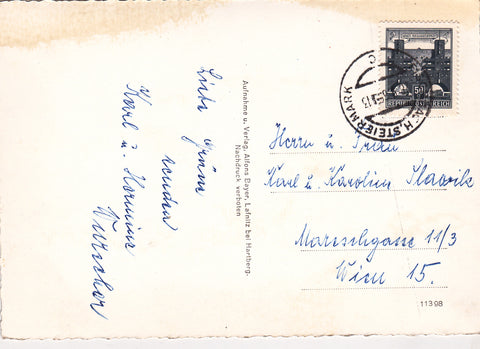 Liebe Grüße
senden
Karl u. Hermine
Wurscher
Aufnahme u. Verlag, Alfons Bayer, Lafnitz bei Hartberg.
Nachdruck verboten
50
REPUBLIK ÖSTERREICH
STEIERMARK
Herrn u. Frau
Karl u. Karoline Slawik
Marschgasse 11/3
Wien 15.
11398